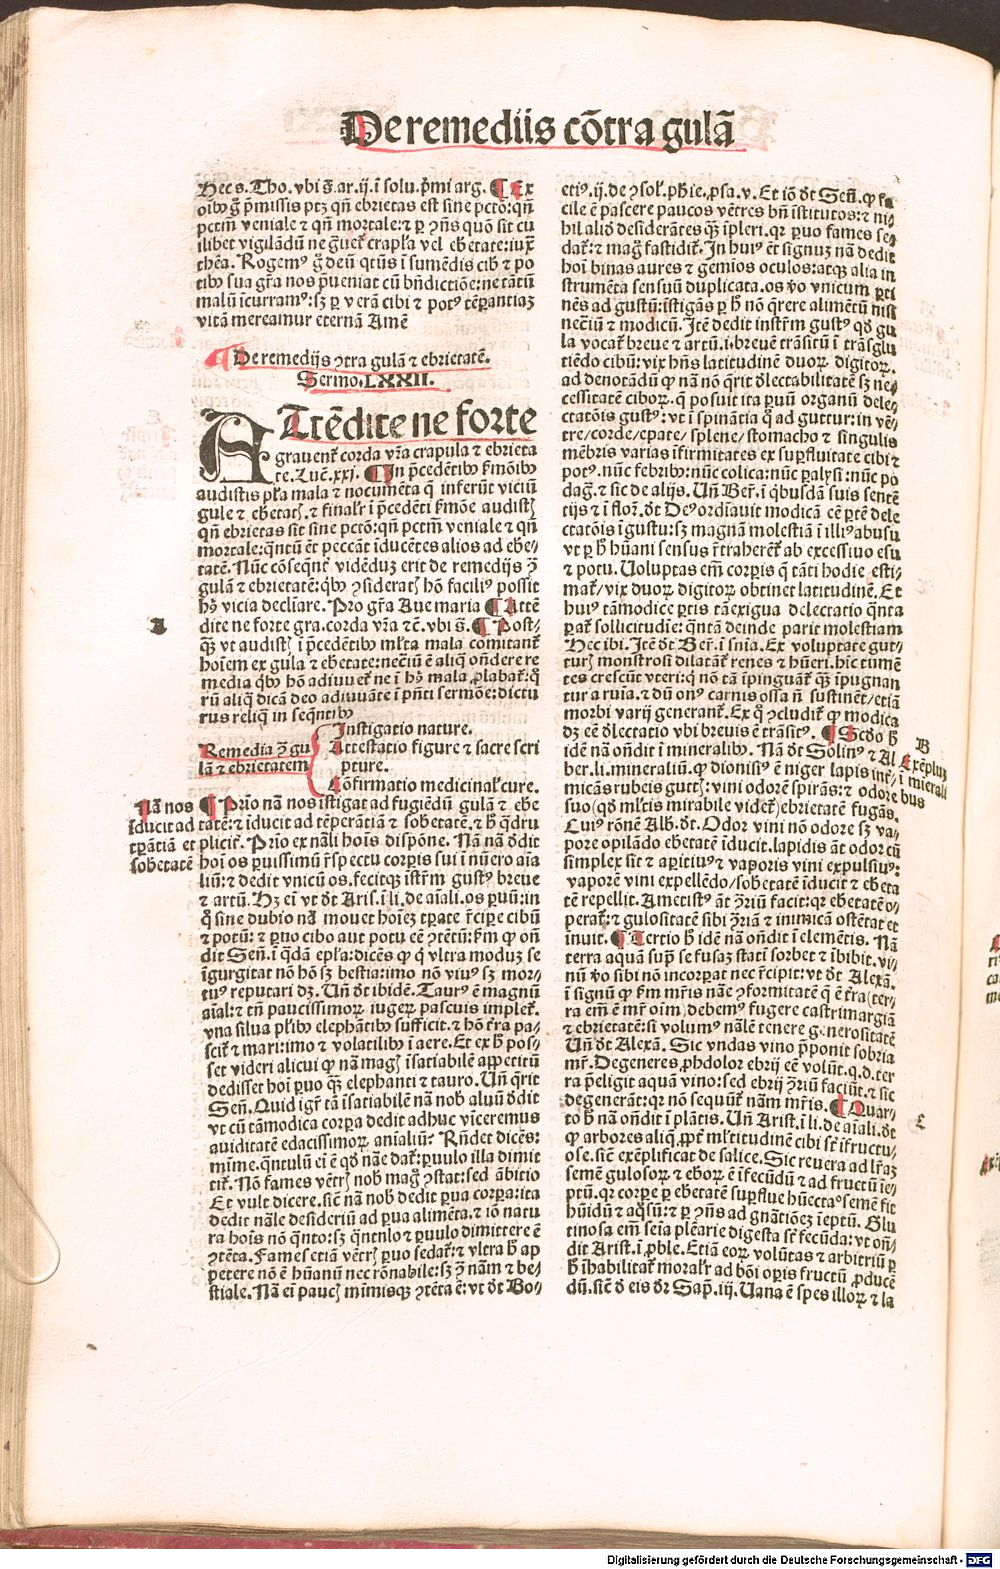 De remediis cõtra gulã
Hec s. Tho. vbi s̃. ar. ij. ĩ solu. p̃mi arg. ¶ Ex
oĩbꝰ g̃ p̃missis ptꝫ qñ ebrietas est sine pctõ: qñ
pctm̃ veniale ⁊ qñ mortale: ⁊ ꝑ ↄñs quõ sit cu
ilibet vigilãdũ ne g̃uet̃ crapĺa vel eb̃etate: iux̃
thẽa. Rogemꝰ g̃ deũ qtũs ĩ sumẽdis cib̃ ⁊ po
tibꝰ sua gr̃a nos p̃ueniat cũ bñdictiõe: ne tãtũ
malũ ĩcurramꝰ: sꝫ ꝑ verã cibi ⁊ potꝰ tẽꝑantiaꝫ
vitã mereamur eternã Amẽ
¶ De remedijs ↄtra gulã ⁊ ebrietatẽ.
Sermo. LXXII.
ATtẽdite ne forte
grauent̃ corda vr̃a crapula ⁊ ebrieta
te. Luc̃. xxi. ¶ In p̃cedẽtibꝰ ẜmõibꝰ
audistis pĺa mala ⁊ nocumẽta q̃ inferũt viciũ
gule ⁊ eb̃etatꝭ. ⁊ finalr̃ ĩ p̃cedẽti ẜmõe audistꝭ
qñ ebrietas sit sine pctõ: qñ pctm̃ veniale ⁊ qñ
mortale: qntũ ẽt peccãt ĩducẽtes alios ad ebe/
tatẽ. Nũc cõseqñt̃ vidẽduꝫ erit de remedijs ↄ̃
gulã ⁊ ebrietatẽ: qbꝰ ↄsideratꝭ hõ faciliꝰ possit
hꝰ vicia declĩare. Pro gr̃a Aue maria ¶ Attẽ
dite ne forte gra. corda vr̃a ⁊c̃. vbi s̃. ¶ Post-
q̃ꝫ vt audistꝭ ĩ p̃cedẽtibꝰ mĺta mala comitant̃
hoĩem ex gula ⁊ eb̃etate: necĩũ ẽ aliq̃ oñdere re
media qbꝰ hõ adiuuet̃ ne ĩ hꝰ mala ꝓlabat̃: q̃
rũ aliq̃ dicã deo adiuuãte ĩ pñti sermõe: dictu
rus reliq̃ in seq̃ntibꝰ
Instigatio nature.
Remedia ↄ̃ gu Attestatio figure ⁊ sacre scri
lã ⁊ ebrietatem pture.
Cõfirmatio medicinal̃ cure.
Nã nos
ĩducit ad
tꝑãtiã et
sob̃etatẽ
¶ Prio nã nos ĩstigat ad fugiẽdũ gulã ⁊ ebe
tatẽ: ⁊ ĩducit ad tẽperãtiã ⁊ sob̃etatẽ. ⁊ b̃ q̃dru
plicit̃. Prio ex nãli hoĩs dispõne. Nã nã ð̃dit
hoĩ os ꝑuissimũ ĩ sp̃ectu corꝑis sui ĩ nũero aĩa
liũ: ⁊ dedit vnicũ os. fecitqꝫ ĩstr̃m gustꝰ breue
⁊ artũ. Hꝫ eĩ vt ð̃t Aris. ĩ li. de aĩali. os ꝑuũ: in
q̃ sine dubio nã mouet hoĩeꝫ tꝑate r̃cipe cibũ
⁊ potũ: ⁊ ꝑuo cibo aut potu eẽ ↄtẽtũ: ẜm ꝙ oñ
dit Señ. ĩ qdã epĺa: dicẽs ꝙ q̃ vltra moduꝫ se
ĩgurgitat nõ hõ sꝫ bestia: imo nõ viuꝰ sꝫ mor/
tuꝰ reputari dꝫ. Uñ ð̃t ibidẽ. Taurꝰ ẽ magnũ
aĩal: ⁊ tñ paucissimoꝝ iugeꝝ pascuis implet̃.
vna silua pĺibꝰ elephãtibꝰ sufficit. ⁊ hõ t̃ra pa/
scit̃ ⁊ mari: imo ⁊ volatilibꝰ ĩ aere. Et ex b̃ pos/
set videri alicui ꝙ nã magꝭ ĩsatiabilẽ appetitũ
dedisset hoĩ ꝑuo q̃ꝫ elephanti ⁊ tauro. Uñ q̃rit
Señ. Quid igr̃ tã ĩsatiabilẽ nã nob̃ aluũ ð̃dit
vt cũ tãmodica corꝑa dedit adhuc vĩceremus
auiditatẽ edacissimoꝝ animaliũ? Rñdet dicẽs:
mĩme. qntulũ eĩ ẽ qð̃ nãe dat̃: ꝑuulo illa dimit
tit̃. Nõ fames vẽtrꝭ nob̃ magꝰ ↄstat: sed ãbitio
Et vult dicere. sic̃ nã nob̃ dedit ꝑua corꝑa: ita
dedit nãle desideriũ ad ꝑua alimẽta. ⁊ iõ natu
ra hoĩs nõ q̃nto: sꝫ q̃ntulo ⁊ ꝑuulo dimittere ẽ
ↄtẽta. Fames etiã vẽtrꝭ ꝑuo sedat̃: ⁊ vltra b̃ ap
petere nõ ẽ hũanũ nec rõnabile: sꝫ ↄ̃ nãm ⁊ be/
stiale. Nã eĩ paucꝭ mĩmisqꝫ ↄtẽta ẽ: vt ð̃t Bo/
etiꝰ. ij. de ↄsol̃. pħie. ꝓsa. v. Et iõ ð̃t Señ. ꝙ fa
cile ẽ pascere paucos vẽtres bñ ĩstitutos: ⁊ ni/
hil aliõ desiderãtes q̃ꝫ ĩpleri. qꝛ ꝑuo fames se/
dat̃: ⁊ magꝭ fastidit̃. In huiꝰ ẽt signuꝫ nã dedit
hoĩ binas aures ⁊ gemĩos oculos: atqꝫ alia in
strumẽta sensuũ duplicata. os ṽo vnicum ꝑti
nẽs ad gustũ: ĩstigãs ꝑ b̃ nõ q̃rere alimẽtũ nisi
necc̃iũ ⁊ modicũ. Itẽ dedit instr̃m gustꝰ qð̃ gu
la vocat̃ breue ⁊ artũ. i. breuẽ trãsitũ ĩ trãsglu
tiẽdo cibũ: vix hñs latitudinẽ duoꝝ digitoꝝ.
ad denotãdũ ꝙ nã nõ q̃rit ð̃lectabilitatẽ sꝫ ne/
cessitatẽ ciboꝝ. q̃ posuit ita ꝑuũ organũ dele/
ctatõis gustꝰ: vt ĩ spinãtia q̃ ad guttur: in vẽ/
tre/corde/epate/splene/stomacho ⁊ singulis
mẽbris varias ĩfirmitates ex suꝑfluitate cibi ⁊
potꝰ. nũc febribꝰ: nũc colica: nũc ꝑalysi: nũc po
dag̃. ⁊ sic de alijs. Uñ Ber̃. ĩ q̃busdã suis sentẽ
tijs ⁊ ĩ floꝝ. ð̃t Deꝰ ordĩauit modicã eẽ ꝑtẽ dele
ctatõis ĩ gustu: sꝫ magnã molestiã ĩ illiꝰ abusu
vt ꝑ b̃ hũani sensus r̃traherẽt̃ ab excessiuo esu
⁊ potu. Uoluptas em̃ corꝑis q̃ tãti hodie esti/
mat̃/ vix duoꝝ digitoꝝ obtinet latitudinẽ. Et
huiꝰ tãmodice ꝑtis tã exigua delectatio q̃nta
ꝑat̃ sollicitudĩe: q̃ntã deinde parit molestiam
Hec ibi. Itẽ ð̃t Ber̃. ĩ sñia. Ex voluptate gut/
turꝭ monstrosi dilatãt̃ renes ⁊ hũeri. hĩc tumẽ
tes crescũt vteri: q̃ nõ tã ĩpinguãt̃ q̃ꝫ ĩpugnan
tur a ruia. ⁊ dũ onꝰ carnis ossa ñ sustinẽt/ etiã
morbi varij generant̃. Ex q̃ ↄcludit̃ ꝙ modica
dꝫ eẽ ð̃lectatio vbi breuis ẽ trãsitꝰ. ¶ Scðo b̃
idẽ nã oñdit ĩ mineralibꝰ. Nã ð̃t Solinꝰ ⁊ Al
ber. li. mineraliũ. ꝙ dionisiꝰ ẽ niger lapis
micãs rubeis guttꝭ: vini odorẽ spirãs: ⁊ odore
suo (qð̃ mĺtis mirabile videt̃) ebrietatẽ fugãs.
Cuiꝰ rõnẽ Alb. ð̃t. Odor vini nõ odore sꝫ va/
pore opilãdo eb̃etatẽ ĩducit. lapidis ãt odor cũ
simplex sit ⁊ aꝑitiuꝰ ⁊ vaporis vini expulsiuꝰ:
vaporẽ vini expellẽdo/ sob̃etatẽ ĩducit ⁊ eb̃eta
tẽ repellit. Ametistꝰ ãt ↄ̃riũ facit: qꝛ eb̃etatẽ o/
perat̃: ⁊ gulositatẽ sibi ↄ̃riã ⁊ inimicã ostẽtat et
innuit. ¶ Tertio b̃ idẽ nã oñdit ĩ elemẽtis. Nã
terra aquã suꝑ se fusaꝫ statĩ sorbet ⁊ ĩbibit. vi/
nũ ṽo sibi nõ incorꝑat nec r̃cipit: vt ð̃t Alexã.
ĩ signũ ꝙ ẜm mr̃is nãe ↄformitatẽ q̃ ẽ t̃ra (ter/
ra em̃ ẽ mr̃ oim̃) debemꝰ fugere castrimargiã
⁊ ebrietatẽ: si volumꝰ nãlẽ tenere generositatẽ
Uñ ð̃t Alexã. Sic vndas vino p̃ponit sobria
mr̃. Degeneres ꝓhdolor ebrij eẽ volũt. q. d. ter
ra p̃eligit aquã vino: sed ebrij ↄ̃riũ faciũt. ⁊ sic
degenerãt: qꝛ nõ sequũt̃ nãm mr̃is. ¶ Quar/
to b̃ nã oñdit ĩ plãtis. Uñ Arist. ĩ li. de aĩali. ð̃t
ꝙ arbores aliq̃. ꝓpt̃ mĺtitudinẽ cibi st̃ ĩfructu/
ose. sic̃ exẽplificat de salice. Sic reuera ad lr̃aꝫ
semẽ gulosoꝝ ⁊ eboꝝ ẽ ĩfecũdũ ⁊ ad fructũ ie/
ptũ. qꝛ corꝑe ꝑ eb̃etatẽ suꝑflue hũectato semẽ fit
hũidũ ⁊ aq̃sũ: ⁊ ꝑ ↄñs ad gnãtiõeꝫ ĩeptũ. Glu
tinosa em̃ seĩa plẽarie digesta st̃ fecũda: vt oñ/
dit Arist. ĩ ꝓble. Etiã eoꝝ volũtas ⁊ arbitriũ ꝑ
b̃ ĩhabilitat̃ moralr̃ ad bõi oꝑis fructũ ꝓducẽ
dũ. sic̃ ð̃ eis dr̃ Sap̃. iij. Uana ẽ spes illoꝝ ⁊ la
A
B
Exẽpluꝫ
ĩ minerali
bus
C
Digitalisierung gefördert durch die Deutsche Forschungsgemeinschaft - DFG